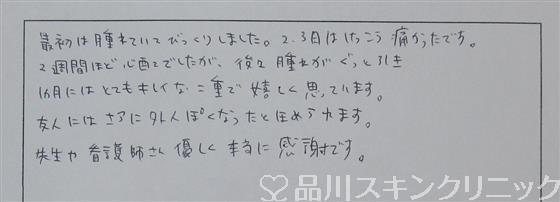 最初は腫れていてびっくりしました。2、3日はけっこう痛かったです。
2週間ほど心配でしたが、後で腫れがぐっと引き
1ヵ月にはとてもキレイな二重で嬉しく思っています。
友人にはさらに外人ぽくなったとほめられます。
先生や看護師さん優しく本当に感謝です。
品川スキンクリニック